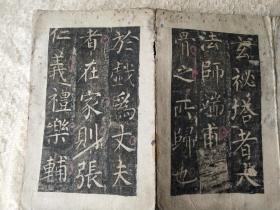 玄秘塔者大
法師端甫
骨之所歸也
於戲為丈夫
者在家則張
仁義禮樂輔